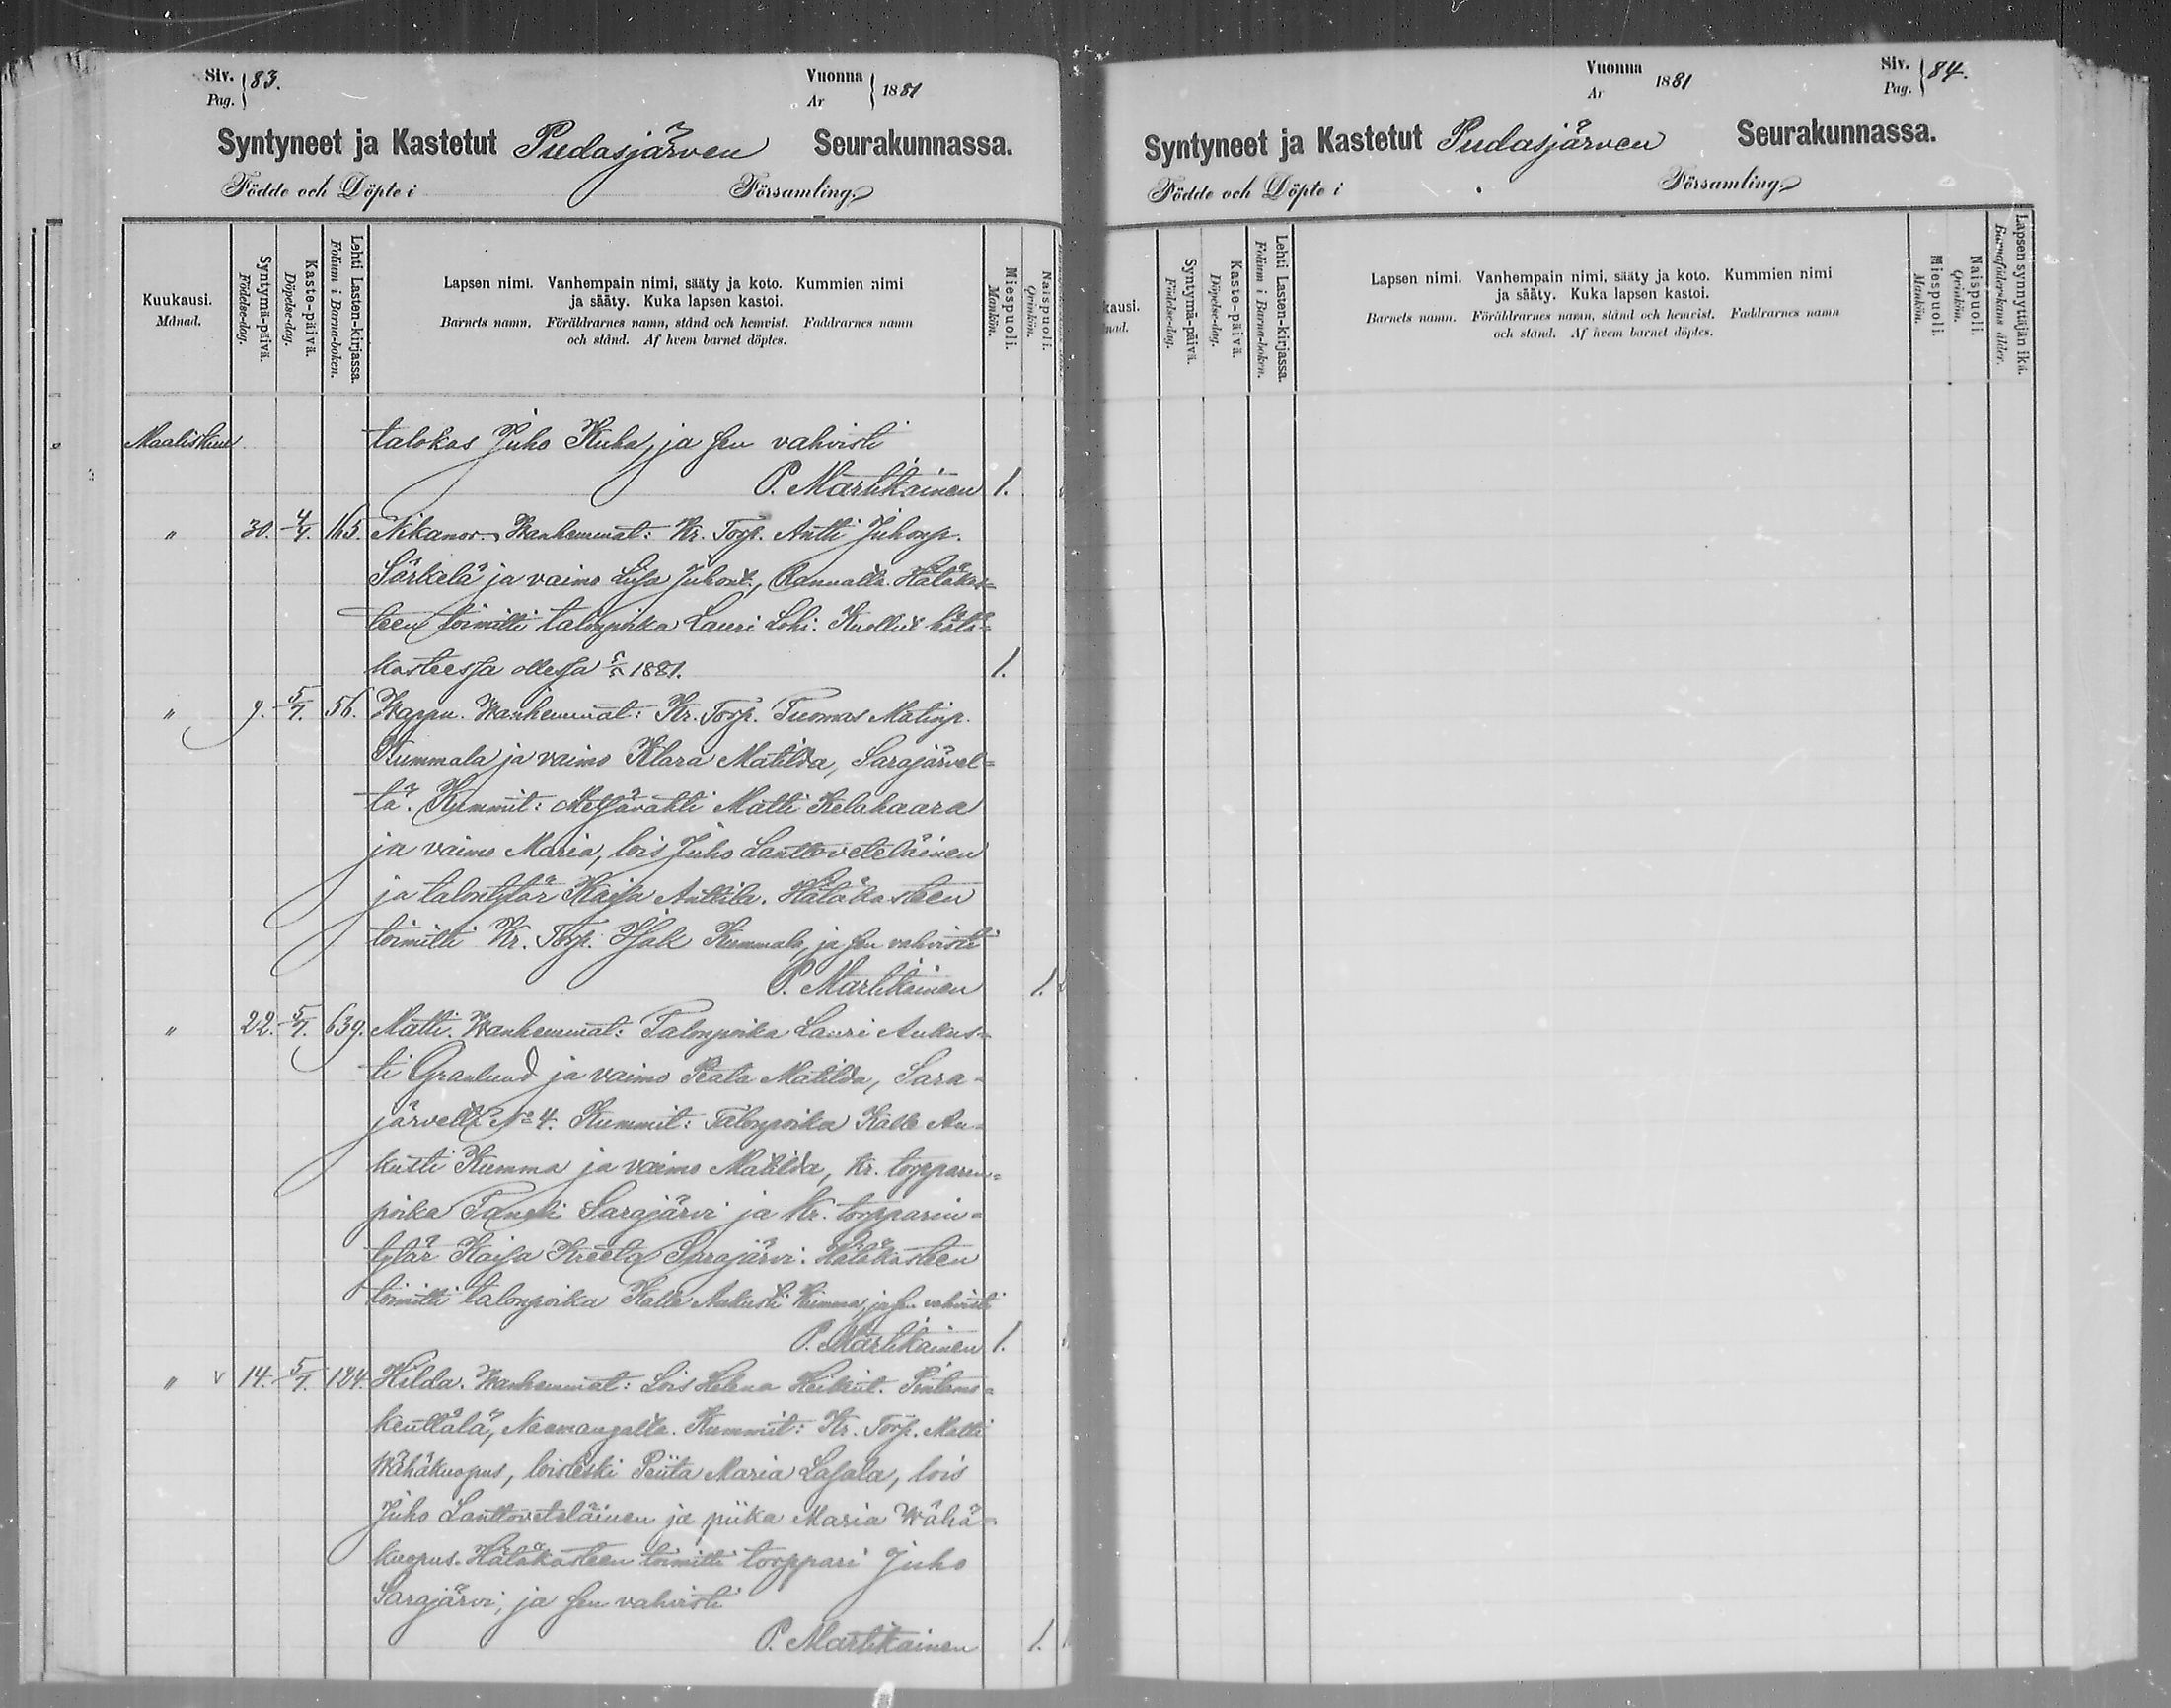 Siv. 83.
Pag.
Vuonna 1881
Ar
Syntyneet ja Kastetut Pudasjärven Seurakunnassa.
Födde och Döpte i Församling.
Kuukausi.
Månad.
Syntymä-päivä.
Födelse-dag.
Kaste-päivä.
Döpelse-dag.
Lehti Lasten-kirjassa.
Folium i Barna-boken.
Lapsen nimi. Vanhempain nimi, sääty ja koto. Kummien nimi
ja sääty. Kuka lapsen kastoi.
Barnets namn. Föräldrarnes namn, stånd och hemvist. Faddrarnes namn
och stånd. Af hvem barnet döptes.
Miespuoli.
Mankön.
Naispuoli.
Qvinkön.
Maaliskuu talokas Juho Kuha, ja sen vahvisti
P. Martikainen 1.
" 30. 4/7. 165. Nikanor. Wanhemmat: Kr. Torp. Antti Juhonp.
Särkelä ja vaimo Liisa Juhont., Ranualla. Hätäkas=
teen toimitti talonpoika Lauri Lohi. Kuollut hätä=
kasteessa ollessa 1881. 1.
" 9. 5/7. 56. Wappu. Wanhemmat: Kr. Torp. Tuomas Matinp.
Kummala ja vaimo Klara Matilda, Sarajärvel=
tä. Kummit: Metsävahti Matti Kelahaara
ja vaimo Maria, lois Juho Lanttoveteläinen
ja talontytär Kaisa Anttila. Hätäkasteen
toimitti Kr. Torp. Isak Kummala, ja sen vahvisti
P. Martikainen 1.
" 22. 5/7. 639. Matti. Wanhemmat: Talonpoika Lauri Aukus=
ti Granlund ja vaimo Priita Matilda, Sara=
järveltä No 4. Kummit: Talonpoika Kalle Au=
kusti Kumma ja vaimo Matilda, Kr. torpparin=
poika Taneli Sarajärvi ja Kr. torpparin=
tytär Kaisa Kreeta Sarajärvi. Hätäkasteen
toimitti talonpoika Kalle Aukusti Kumma, ja sen vahvisti
P. Martikainen 1.
" v 14. 5/7. 124. Hilda. Wanhemmat: Lois Helena Heikint. Pintamo=
kenttälä, Naamangalta. Kummit: Kr. Torp. Matti
Wähäkuopus, loisleski Priita Maria Lasala, lois
Juho Lanttoveteläinen ja piika Maria Wähä=
kuopus. Hätäkasteen toimitti torppari Juho
Sarajärvi, ja sen vahvisti
P. Martikainen 1.
Vuonna 1881
Ar
Siv. 84.
Pag.
Syntyneet ja Kastetut Pudasjärven Seurakunnassa.
Födde och Döpte i Församling.
kausi.
nad.
Syntymä-päivä.
Födelse-dag.
Kaste-päivä.
Döpelse-dag.
Lehti Lasten-kirjassa.
Folium i Barna-boken.
Lapsen nimi. Vanhempain nimi, sääty ja koto. Kummien nimi
ja sääty. Kuka lapsen kastoi.
Barnets namn. Föräldrarnes namn, stånd och hemvist. Faddrarnes namn
och stånd. Af hvem barnet döptes.
Miespuoli.
Mankön.
Naispuoli.
Qvinkön.
Lapsen synnyttäjän ikä.
Barnaföderskans ålder.